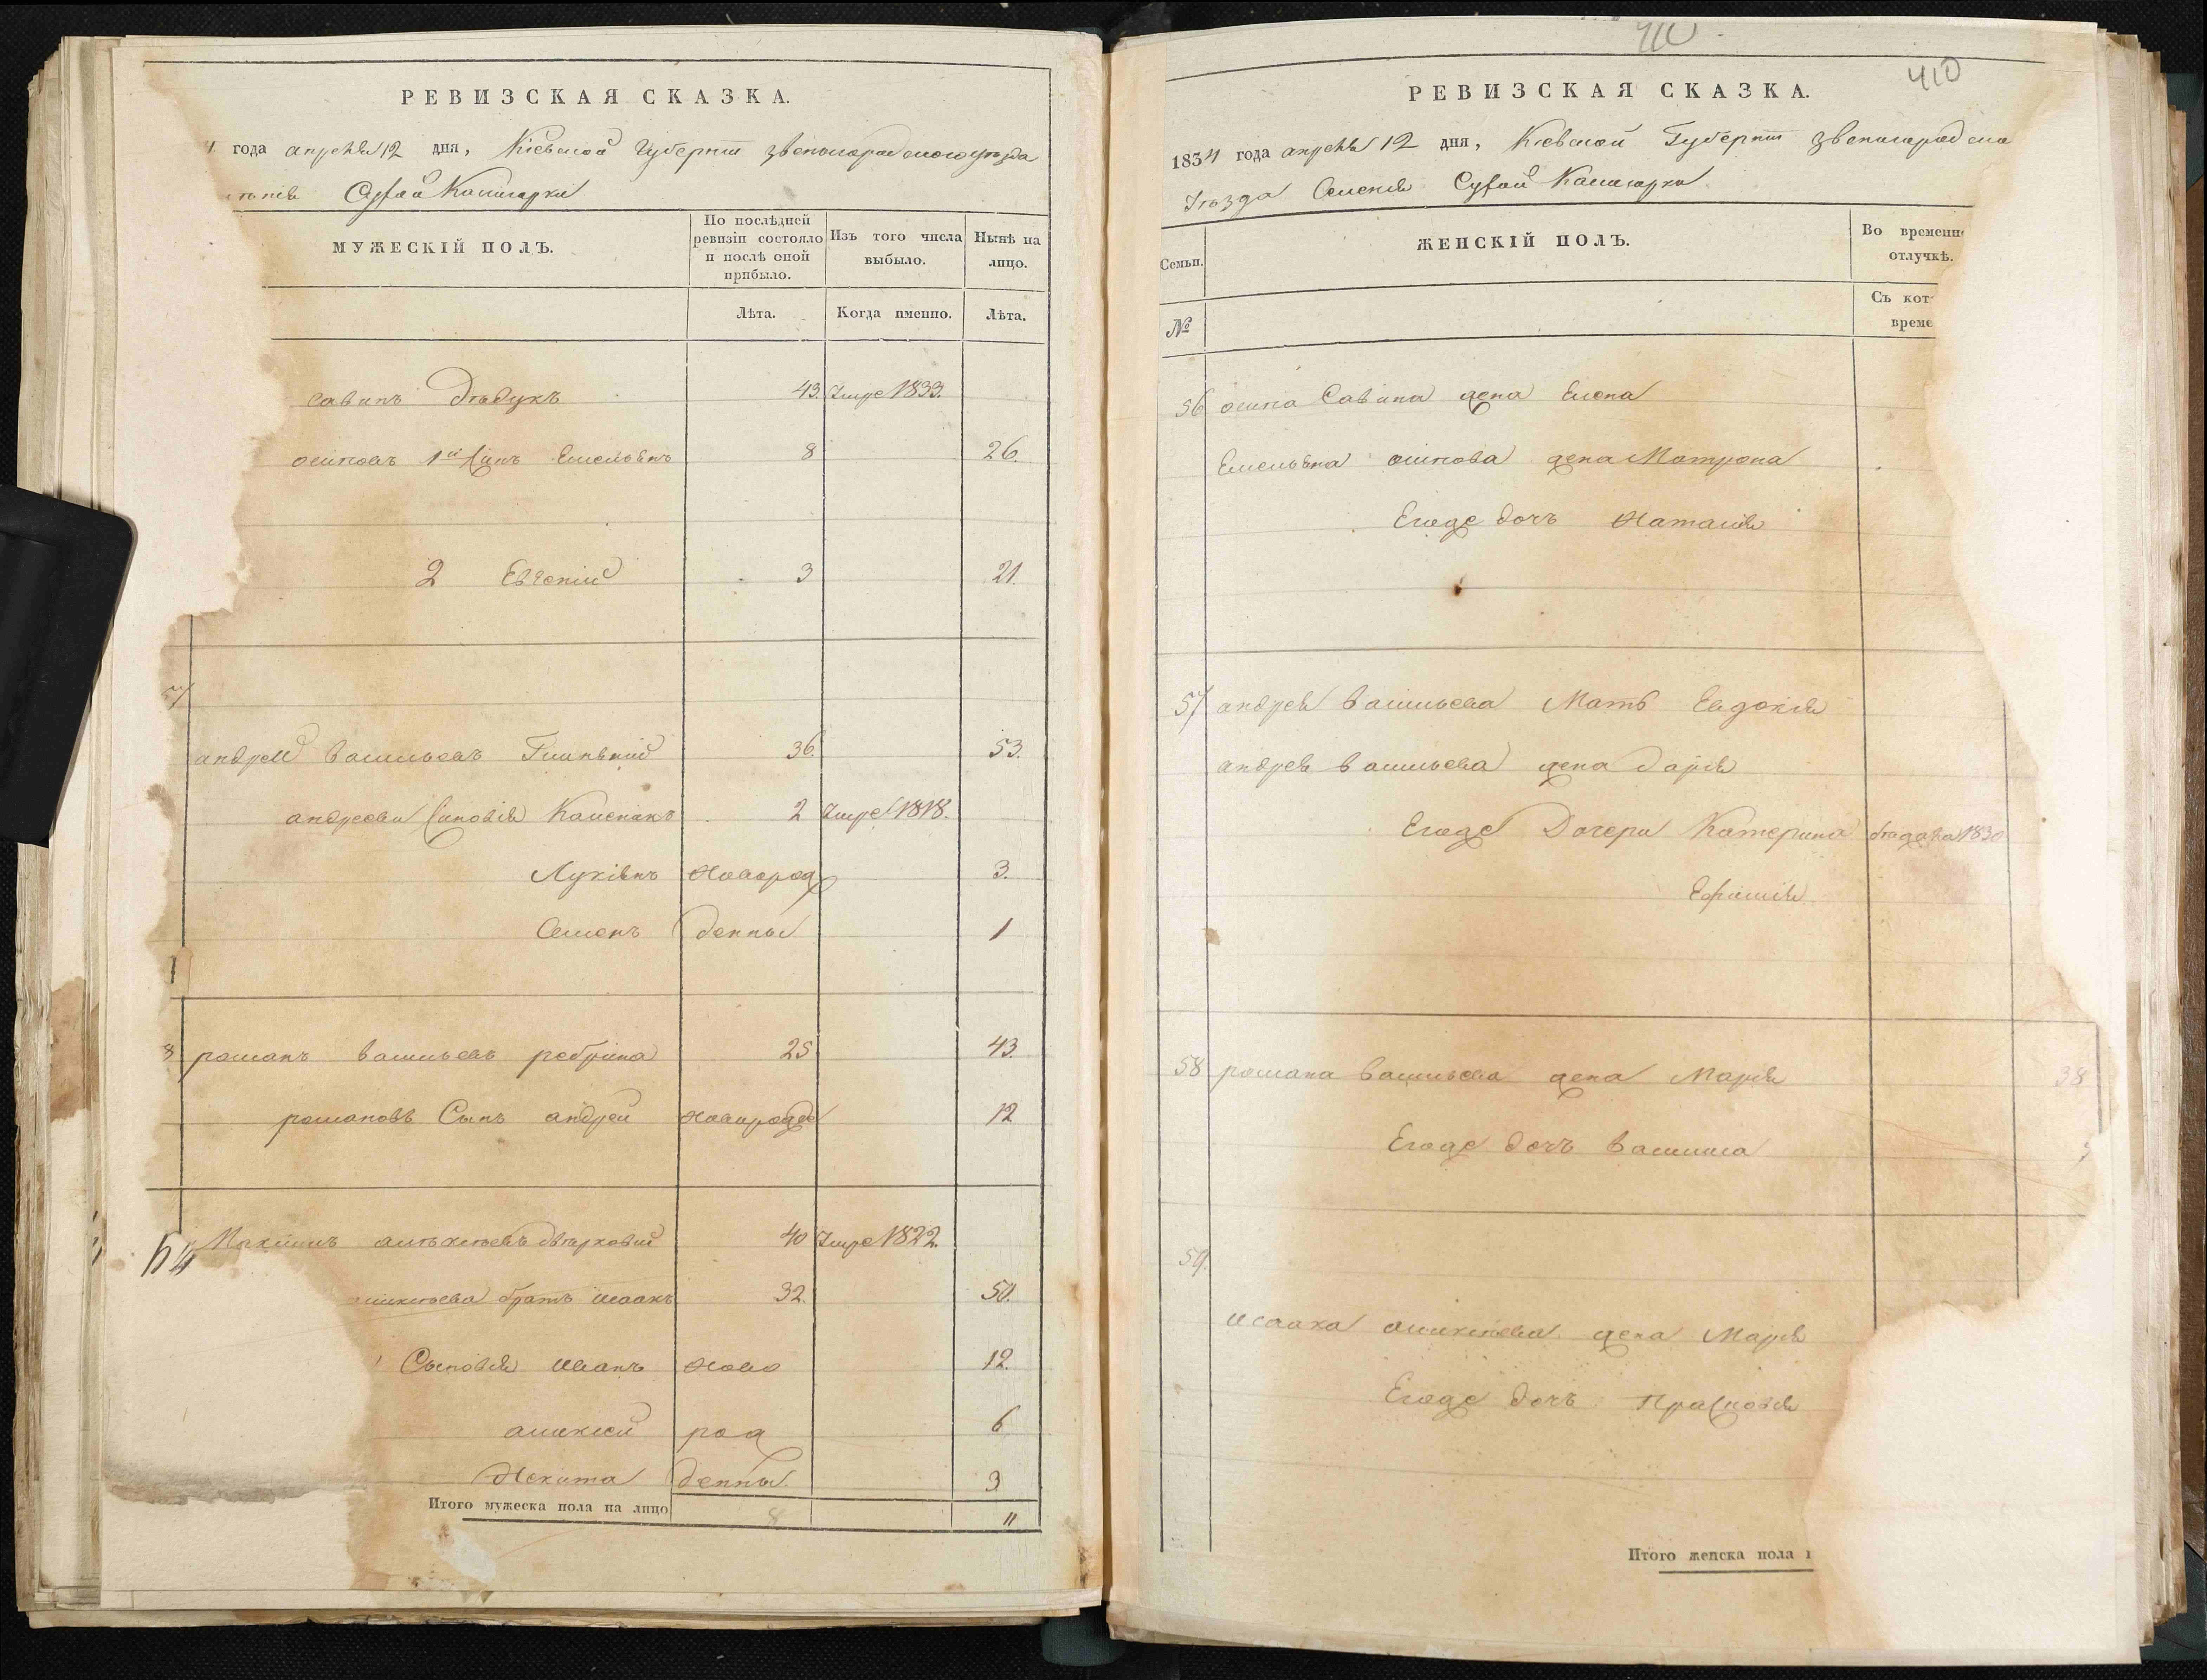 РЕВИЗСКАЯ СКАЗКА.
года апреля 12 дня, Кіевской Губерніи Звенигородского уезда
Сухой Калигорки
МУЖЕСКІЙ ПОЛЪ.
По послѣдней ревизіи состояло и послѣ оной прибыло.
Изъ того числа выбыло.
Нынѣ на лицо.
Лѣта.
Когда именно.
Лѣта.
Савинъ Дѣдукъ 43. Умре 1833.
осиповъ 1й Синъ Емельянъ 8 26.
2 Евгений 3 21.
57
андрей Васильевъ 36. 53.
андреевы Синовія 2 Умре 1818.
Лукіянъ Новорож 3.
Семенъ денны 1
8 романъ Васильевъ ребрина 25 43.
романовъ Сынъ андрей Новорожде 12
Максимъ 40 Умре 1822.
братъ Исаакъ 32. 50.
Сыновія Иванъ Ново 12.
алексей рож 6
Никита денны. 3
Итого мужеска пола на лицо 8 11
410
410
РЕВИЗСКАЯ СКАЗКА.
1834 года апреля 12 дня, Кіевской Губерніи Звенигородско
Уѣзда Селенія Сухой Калигорки
Семьи.
ЖЕНСКІЙ ПОЛЪ.
Во временн
отлучкѣ.
№
Съ кот
време
56 осипа Савина жена Елена
Емельяна осипова жена Матрона
Егоже дочъ Наталія
57 андрея Васильева Мать Евдокія
андрея Васильева жена Дарія
Егоже Дочери Катерина 1830
Ефимія
58 романа Васильева жена Марія 38
Егоже дочъ Василиса
59.
Исаака алексеева жена Марія
Егоже дочъ Прасковія
Итого женска пола